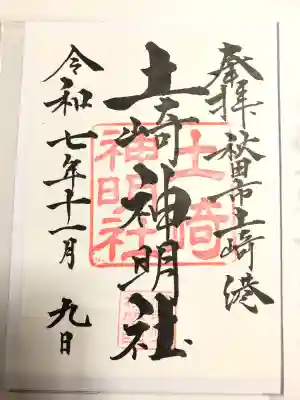 奉拝 秋田市土崎港
土崎神明社
土崎
神明社
令和七年十一月九日